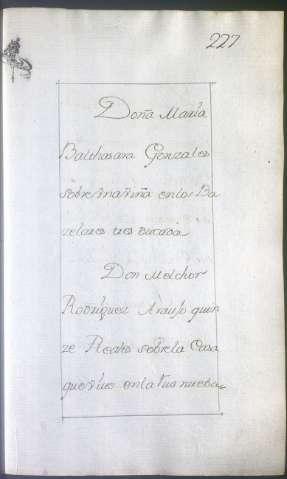 227
Doña Maria
Balthasara Gonzales
sobre vna viña en los Ba
relares tres ducados
Don Melchor
Rodriguez Araujo quin
ze Reales sobre la Casa
que viue en la Rua nueba